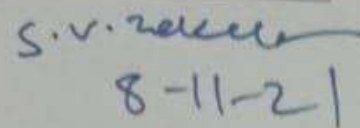 S.V.
8-11-21